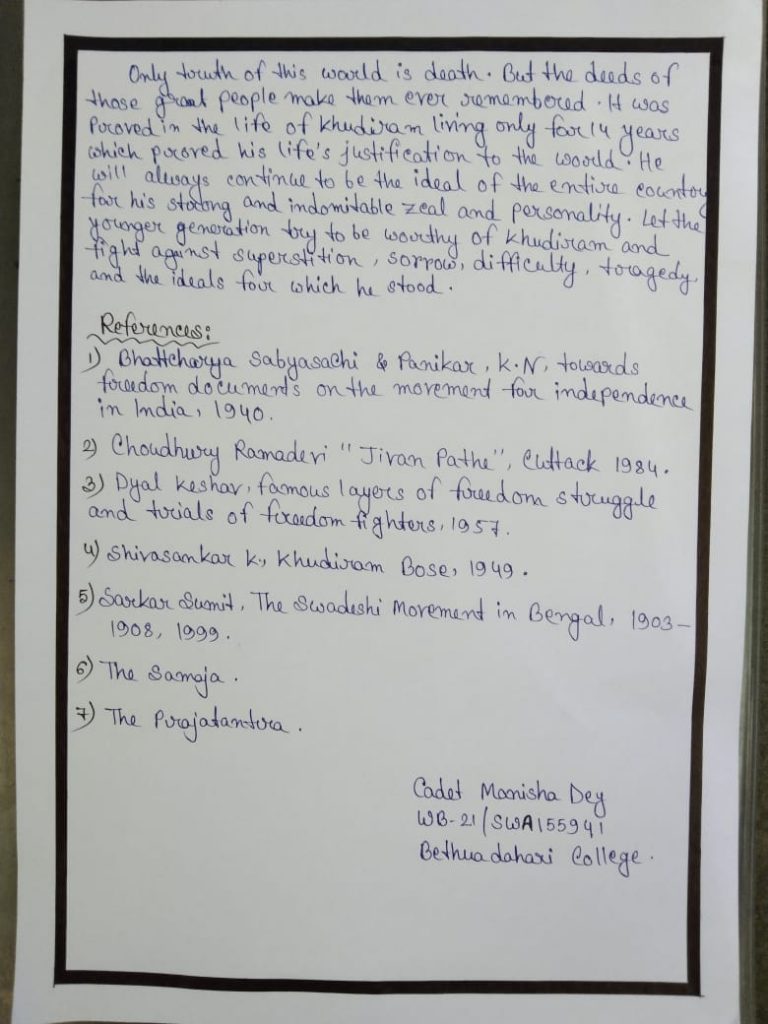 Only truth of this world is death. But the deeds of
those great people make them ever remembered. It was
Proved in the life of Khudiram living only for 14 years
which proved his life's justification to the world. He
will always continue to be the ideal of the entire country
for his strong and indomitable zeal and personality. Let the
younger generation try to be worthy of Khudiram and
fight against superstition, sorrow, difficulty, tragedy,
and the ideals for which he stood.
References:
1) Bhattcharya Sabyasachi & Panikar, K.N, towards
freedom documents on the movement for independence
in India, 1940.
2) Choudhury Ramadevi "Jivan Pathe", Cuttack 1984.
3) Dyal Keshav, famous layers of freedom struggle
and trials of freedom fighters, 1957.
4) Shivasankar K., Khudiram Bose, 1949.
5) Sarkar Sumit, The Swadeshi Movement in Bengal, 1903-
1908, 1999.
6) The Samaja.
7) The Prajatantra.
Cadet Manisha Dey
WB-21/SWA155941
Bethuadahari College.